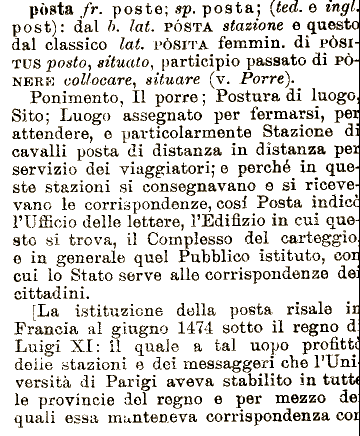 pòsta fr. poste; sp. posta; (ted. e ingl.
post): dal b. lat. PÒSTA stazione e questo
dal classico lat. PÒSITA femmin. di PÒSI-
TUS posto, situato, participio passato di PÒ-
NERE collocare, situare (v. Porre).
Ponimento, Il porre; Postura di luogo,
Sito; Luogo assegnato per fermarsi, per
attendere, e particolarmente Stazione di
cavalli posta di distanza in distanza per
servizio dei viaggiatori; e perché in que-
ste stazioni si consegnavano e si riceve-
vano le corrispondenze, cosí Posta indicò
l'Ufficio delle lettere, l'Edifizio in cui que-
sto si trova, il Complesso del carteggio,
e in generale quel Pubblico istituto, con
cui lo Stato serve alle corrispondenze dei
cittadini.
[La istituzione della posta risale in
Francia al giugno 1474 sotto il regno di
Luigi XI: il quale a tal uopo profittò
delle stazioni e dei messaggeri che l'Uni-
versità di Parigi aveva stabilito in tutte
le provincie del regno e per mezzo dei
quali essa manteneva corrispondenza con